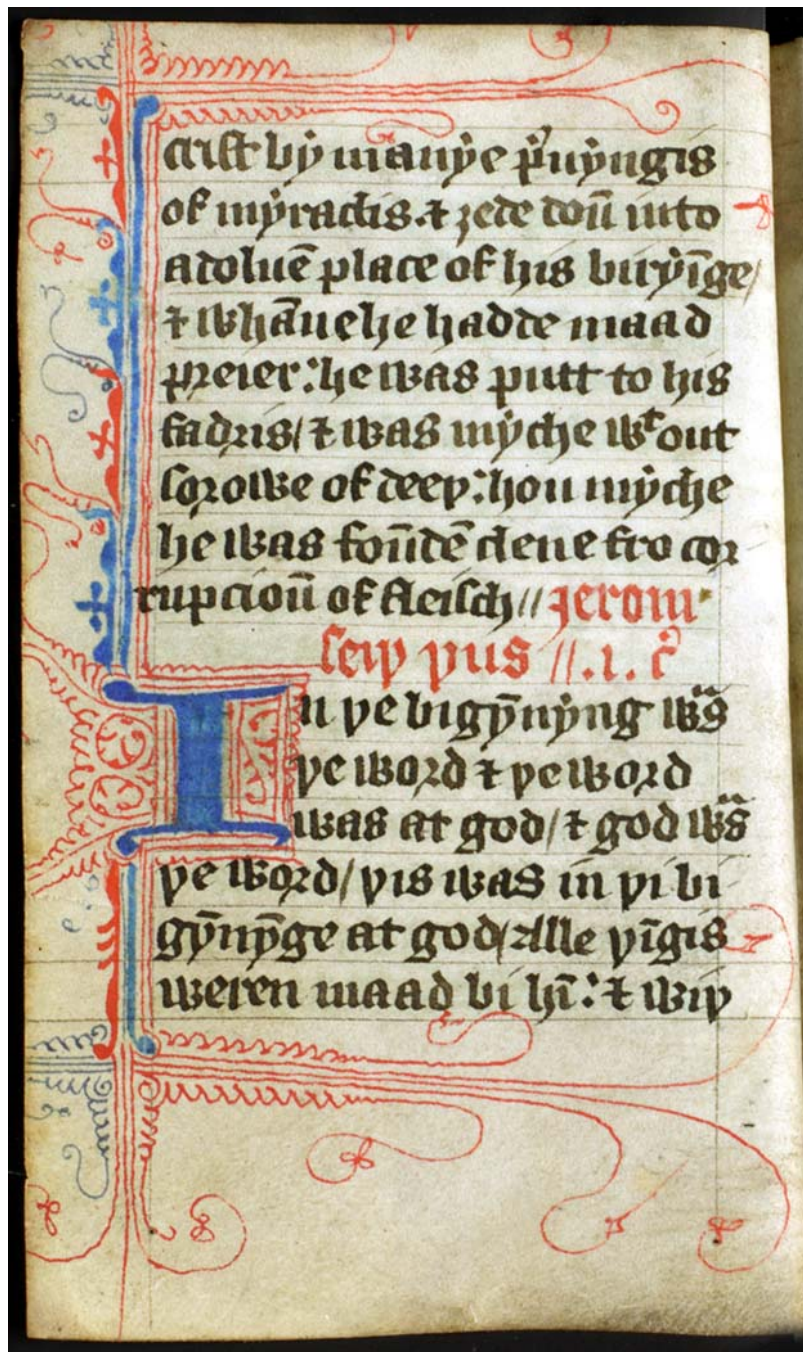 crist bẏ manẏe p̲uẏngis
of mẏraclis . ⁊ ȝede doū into
a doluē place of his biryīge /
⁊ whāne he hadde maad
preier : he was putt to his
fadris / ⁊ was mẏche wᵗ out
sorowe of deeþ : hou mẏche
he was foūdē clene fro cor
rupcioū of fleisch // Jerom
seiþ þus // . i . cᵒ
In þe bigẏ̄nẏng wᵃs
þe word ⁊ þe word
was at god / ⁊ god wᵃs
þe word / þis was in þi bi
gȳnȳge at god / Alle þīgis
weren maad bi hī : ⁊ wiþ